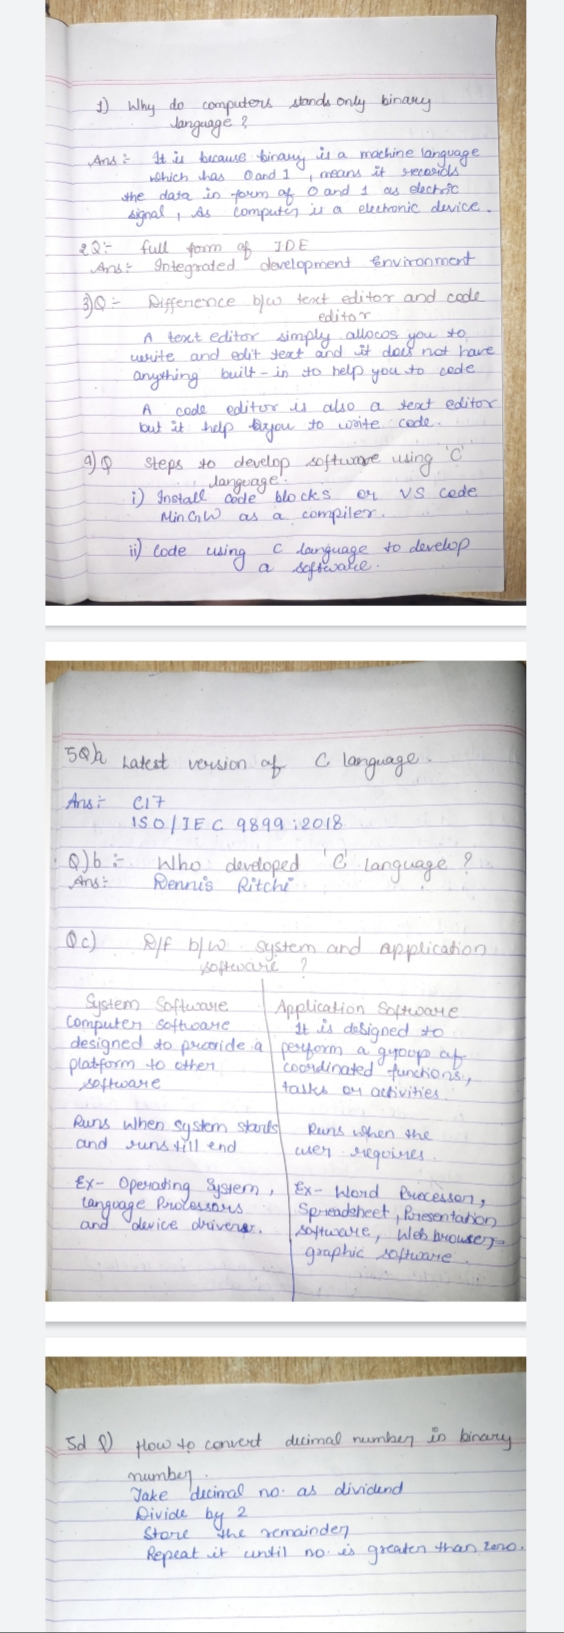 1) Why do computers stands only binary
language ?
Ans :- It is because binary is a machine language
which has 0 and 1 , means it records
the data in form of 0 and 1 as electric
signal , As computer is a electronic device .
2 Q:- full form of IDE
Ans:- Integrated development Environment
3)Q :- Difference b/w text editor and code
editor
A text editor simply allocos you to
write and edit text and it does not have
anything built-in to help you to code
A code editor is also a text editor
but it help you to write code.
4) Q Steps to develop software using 'C'
language.
i) Install Code blocks or VS code
MinGW as a compiler.
ii) Code using C language to develop
a software.
5Q)a Latest version of C language.
Ans :- C17
ISO/IEC 9899:2018
Q)b :- Who developed 'C' language ?
Ans:- Dennis Ritchi
Q c) D/f b/w system and application
software ?
System Software
Computer software
designed to provide a
platform to other
software
Runs when system starts
and runs till end
Ex- Operating System,
Language Processors
and device drivers.
Application Software
It is designed to
perform a group of
coordinated functions,
tasks or activities
Runs when the
user requires.
Ex- Word Processor,
Spreadsheet, Presentation
software, Web browser,
graphic software .
5d Q) How to convert decimal number in binary
number.
Take decimal no. as dividend
Divide by 2
Store the remainder
Repeat it until no. is greater than zero.